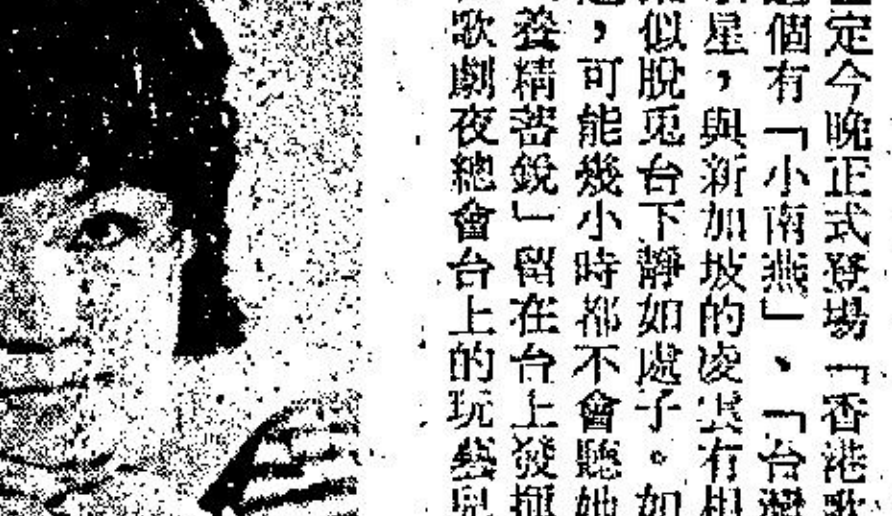 定今晚正式登場「香港歌
個有「小南燕」、「台灣
星，與新加坡的凌雲有相
似脫兎台下靜如處子。如
，可能幾小時都不會聽她
養精蓄銳」留在台上發揮
歌劇夜總會台上的玩藝兒